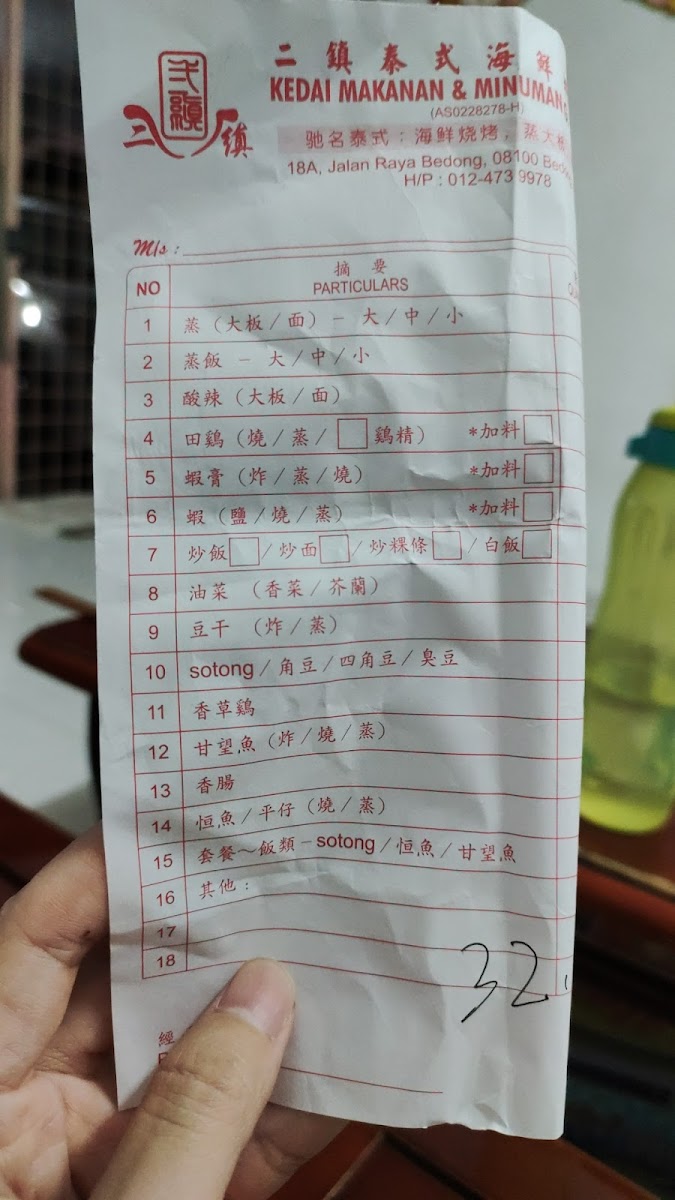 二鎮泰式海鮮
KEDAI MAKANAN & MINUMAN
(AS0228278-H)
二鎮
驰名泰式：海鲜烧烤，蒸大板
18A, Jalan Raya Bedong, 08100
H/P : 012-473 9978
M/s :
NO 摘要 PARTICULARS
1 蒸（大板/面）- 大/中/小
2 蒸飯 - 大/中/小
3 酸辣（大板/面）
4 田鷄（燒/蒸/□鷄精） *加料□
5 蝦膏（炸/蒸/燒） *加料□
6 蝦（鹽/燒/蒸） *加料□
7 炒飯□/炒面□/炒粿條□/白飯□
8 油菜 （香菜/芥蘭）
9 豆干 （炸/蒸）
10 sotong/角豆/四角豆/臭豆
11 香草鷄
12 甘望魚（炸/燒/蒸）
13 香腸
14 恒魚/平仔（燒/蒸）
15 套餐~飯類-sotong/恒魚/甘望魚
16 其他：
17
18
32
經